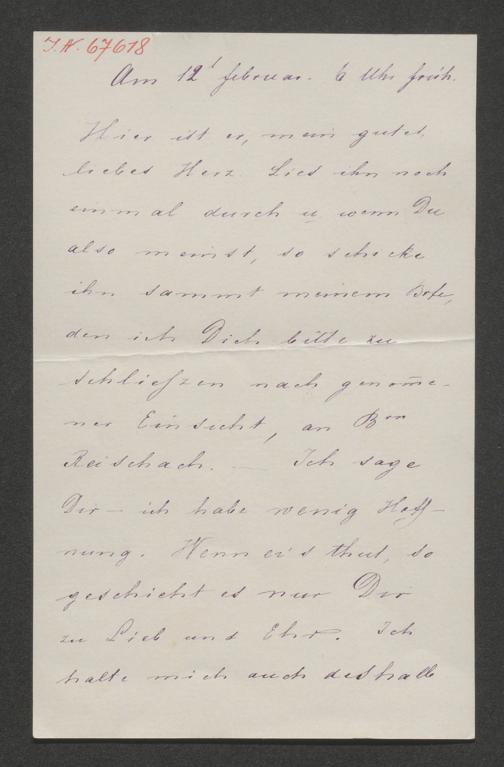 J.N. 67618
Am 12t februar. 6 Uhr früh.
Hier ist er, mein gutes
liebes Herz. Lies ihn noch
einmal durch u wenn Du
also meinst, so schicke
ihn sammt meinem Briefe,
den ich Dich bitte zu
schließen nach genom̄e-
ner Einsicht, an Bon
Reischach. — Ich sage
Dir — ich habe wenig Hoff-
nung. Wenn er's thut, so
geschieht es nur Dir
zu Lieb und Ehr. Ich
halte mich auch deshalb